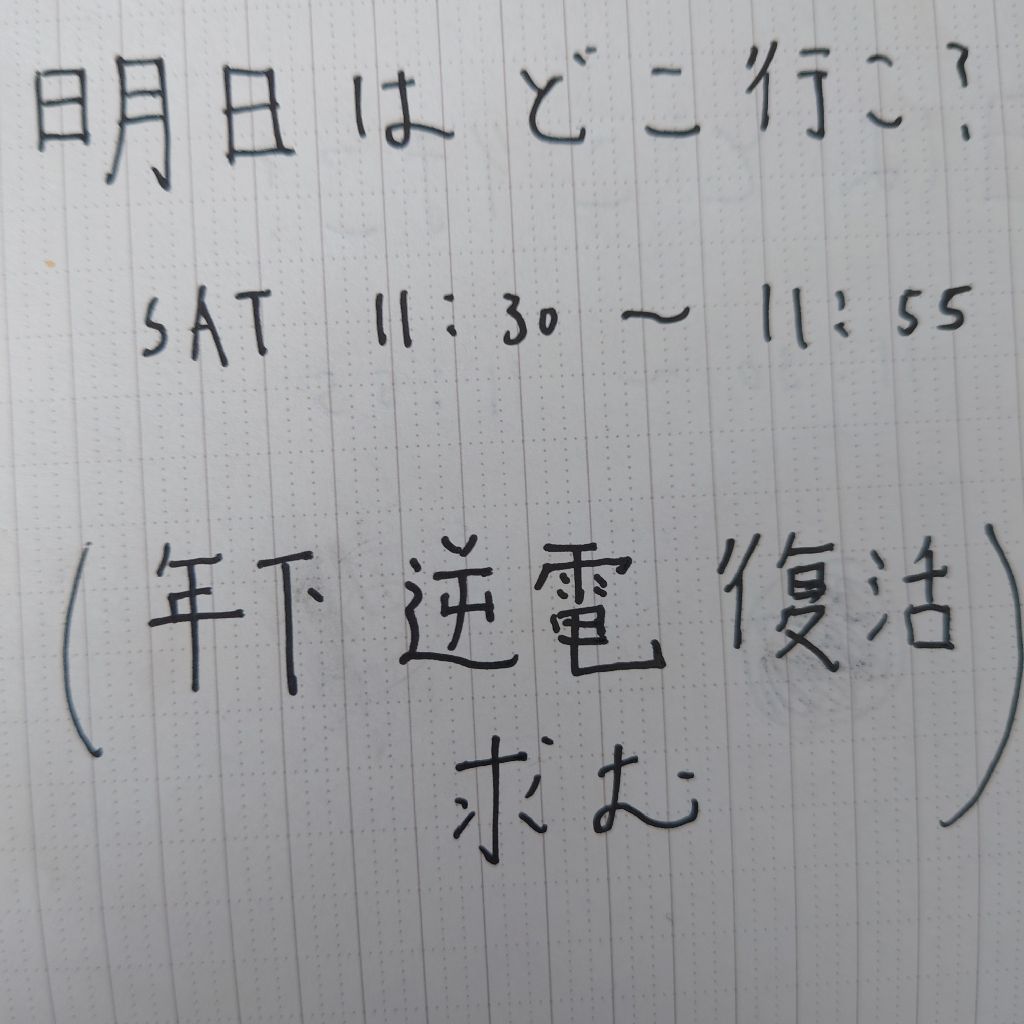 明日は どこ 行こ?
SAT 11:30～11:55
(年下 逆電 復活
求む)